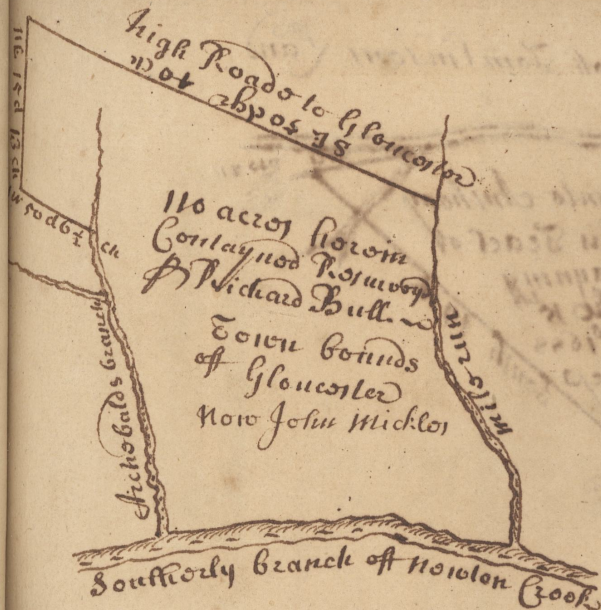 high Roade to Gloucester
SE 50 dgr 40 ch
15 d 13 ch
W 50 d 6 1/2 ch
110 acres herein
Contayned Resurvey
Richard Bull
Town bounds
off Gloucester
Now John Mickles
Archobalds branch
mill run
Southerly branch off Newton Crook